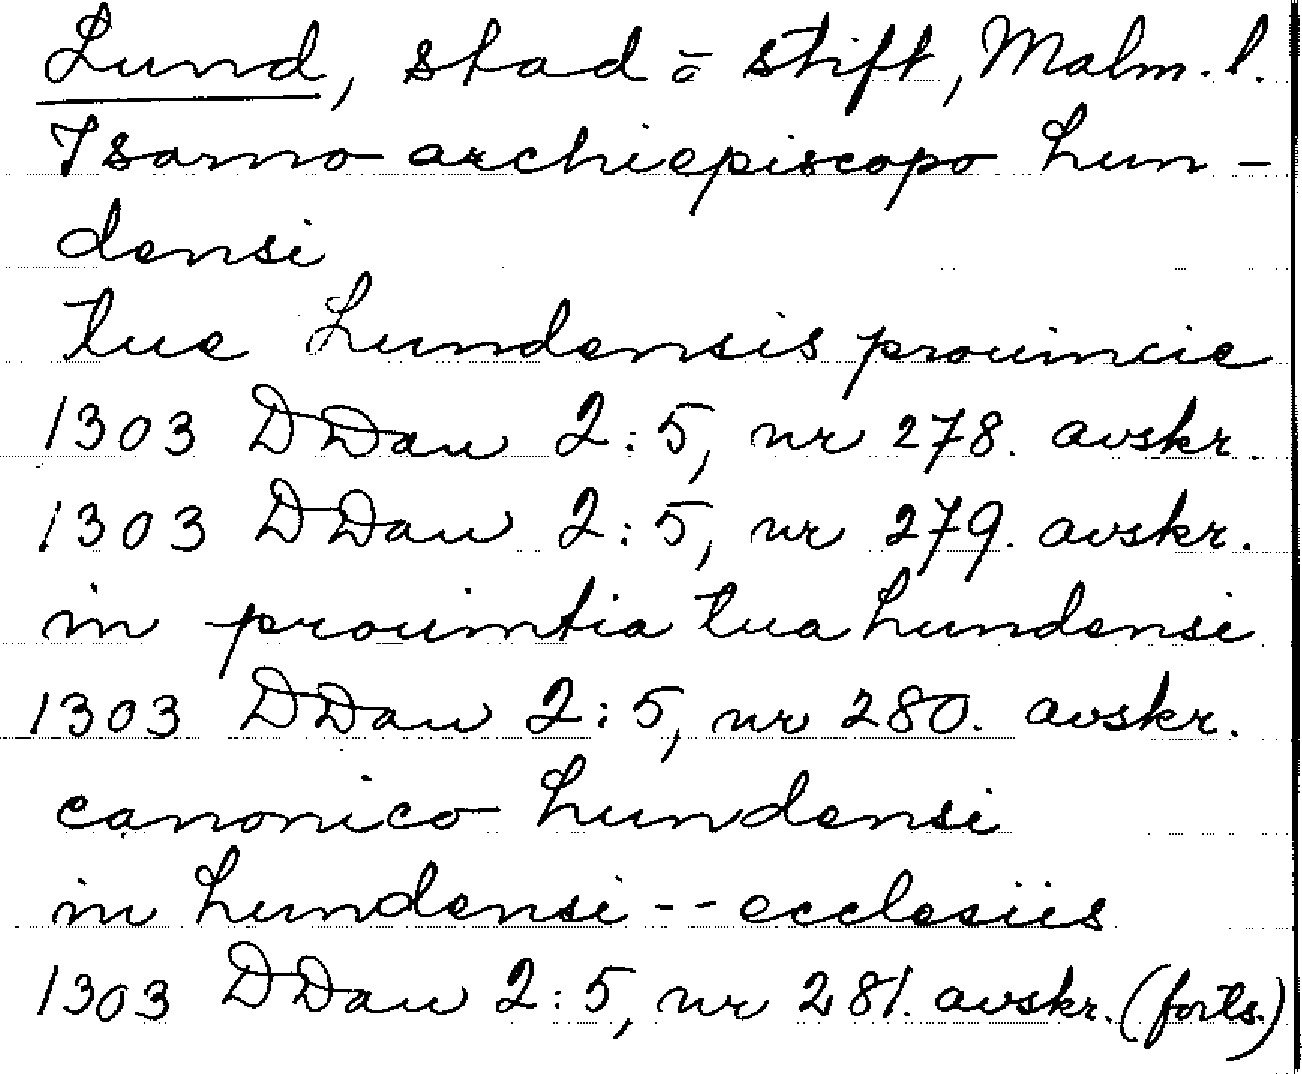 Lund, stad o stift, Malm. l.
Isarno archiepiscopo Lun-
densi
tue Lundensis prouincie
1303 DDan 2:5, nr 278. avskr.
1303 DDan 2:5, nr 279. avskr.
in prouintia tua Lundensi
1303 DDan 2:5, nr 280. avskr.
canonico Lundensi
in Lundensi -- ecclesiis
1303 DDan 2:5, nr 281. avskr. (forts.)